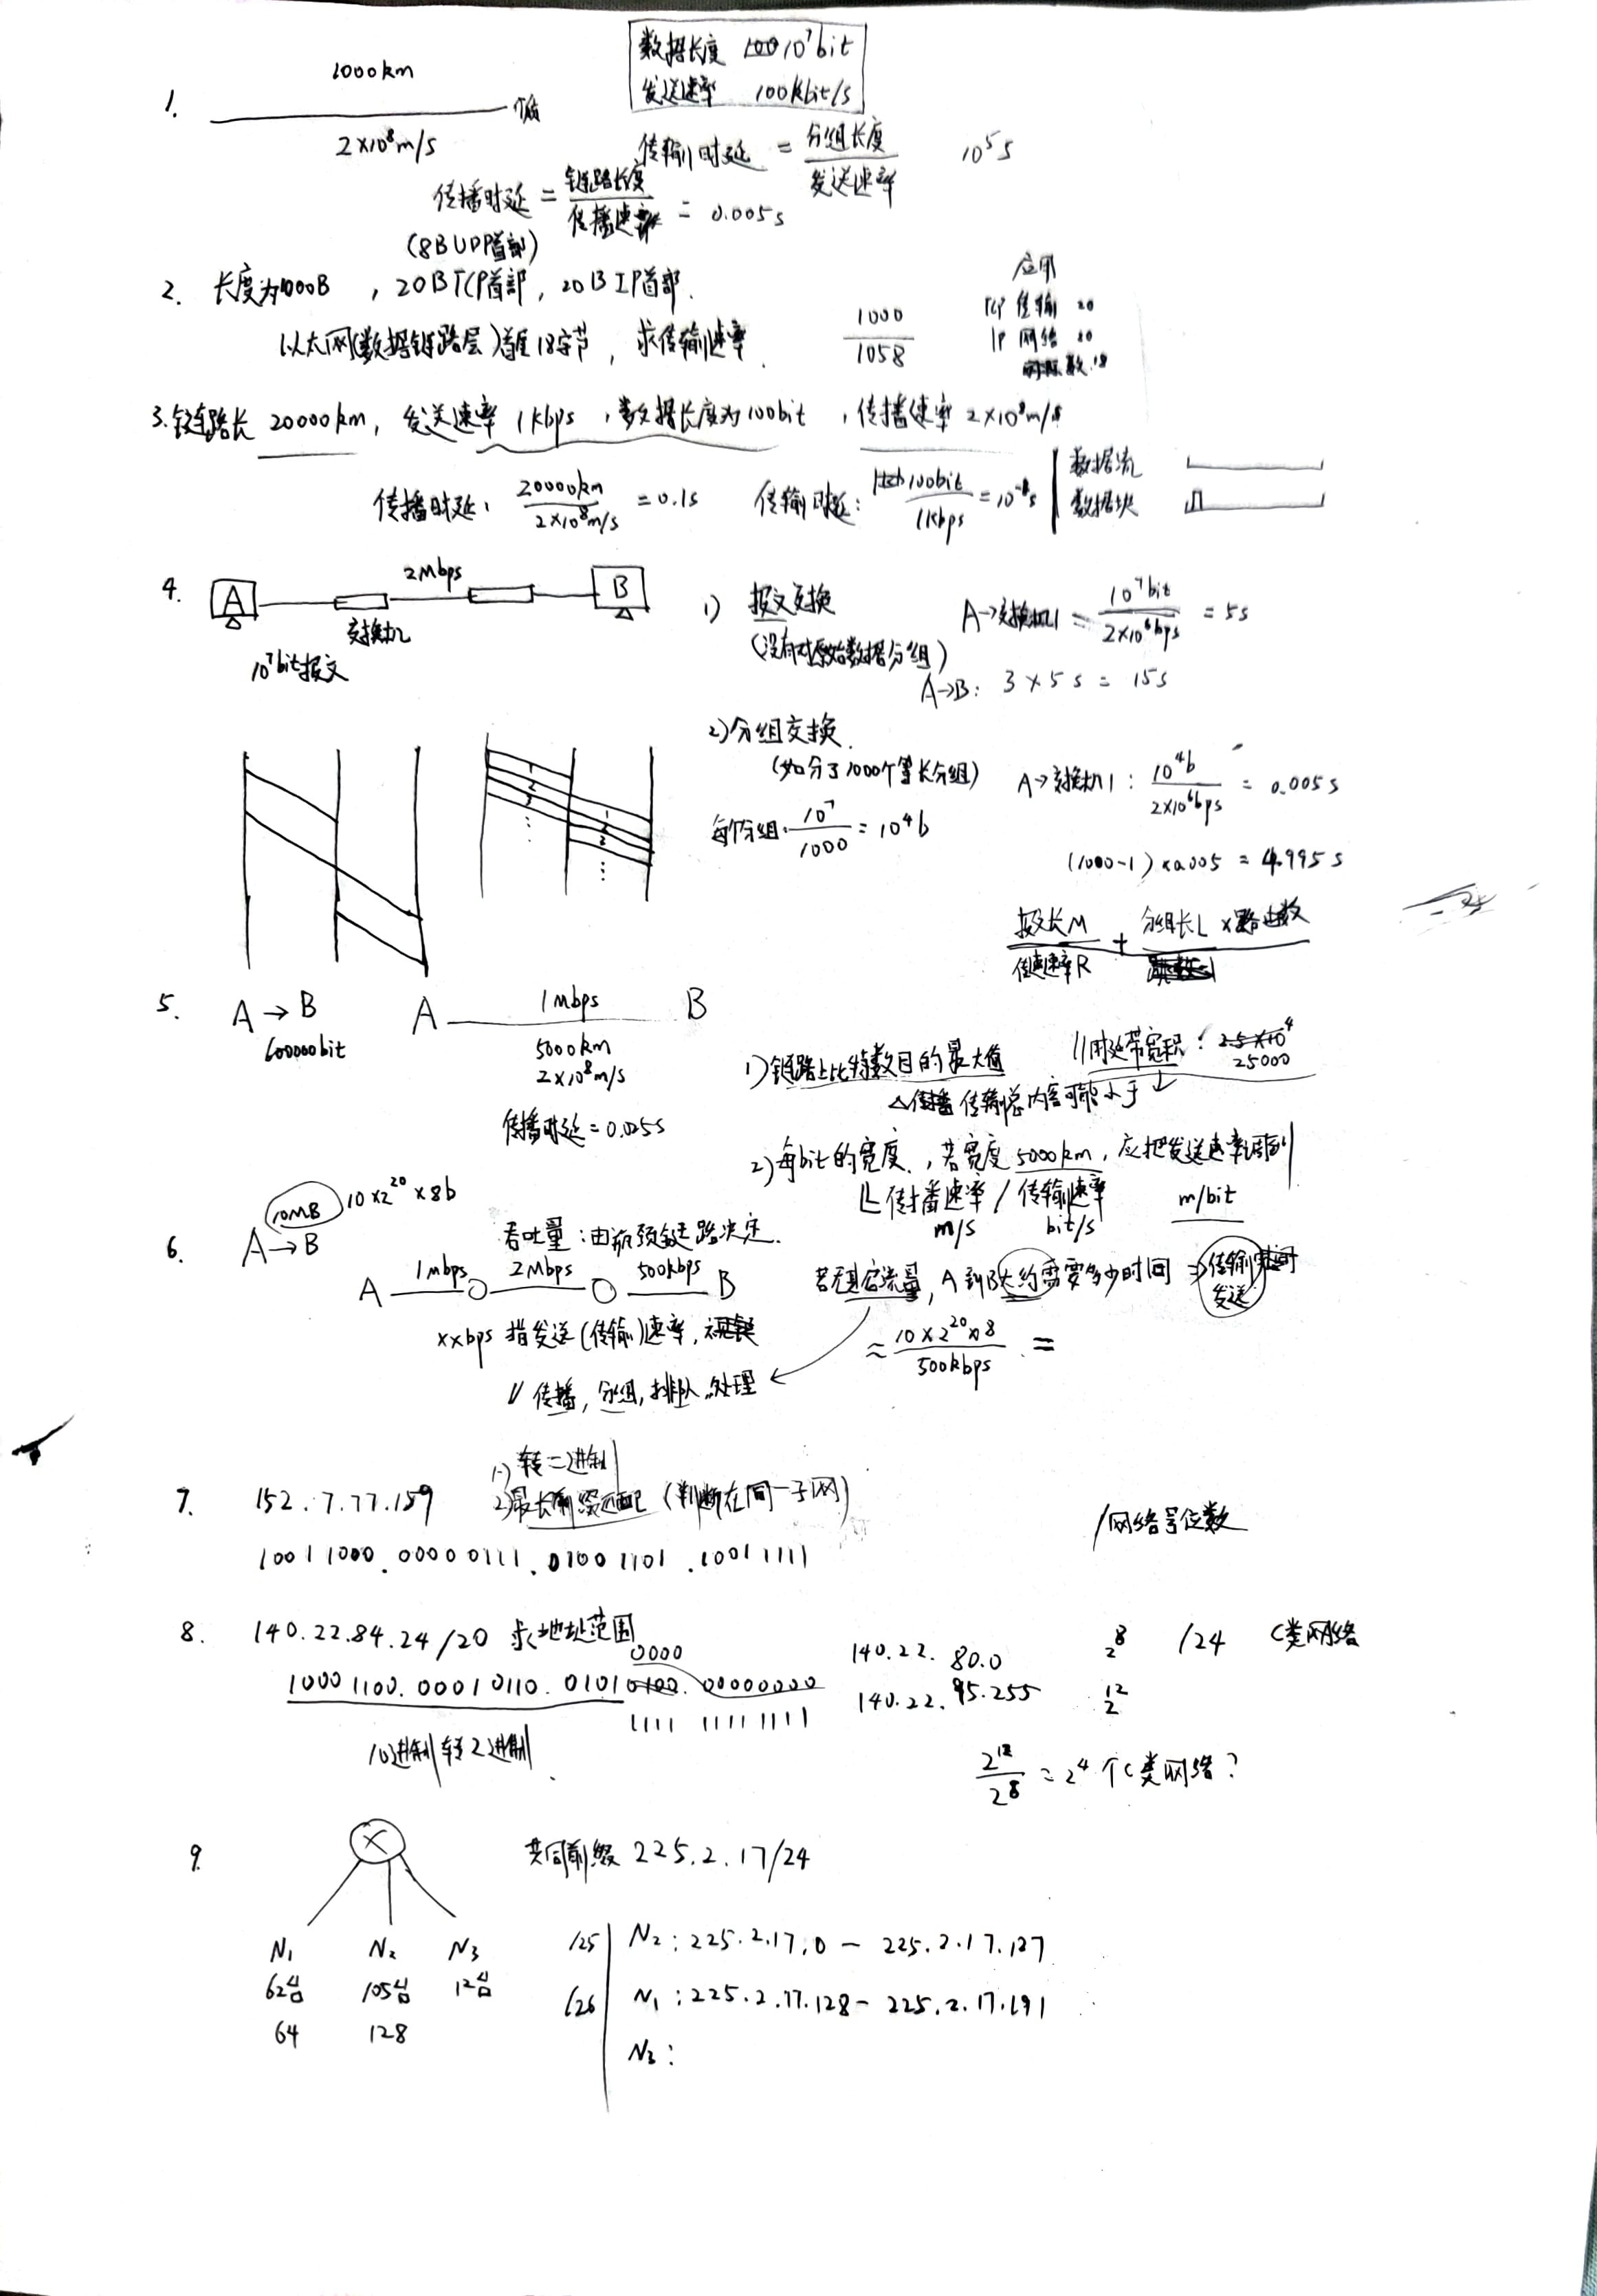 数据长度 10^7 bit
发送速率 100kbit/s
1. 1000km
2×10^8 m/s
传输时延 = 分组长度 / 发送速率 10^5 s
传播时延 = 链路长度 / 传播速率 = 0.005s
(8B UDP首部)
2. 长度为1000B , 20B TCP首部, 20B IP首部.
以太网(数据链路层)首尾18字节, 求传输速率.
1000 / 1058
应用
TCP 传输 20
IP 网络 20
数 18
3. 链路长 20000km, 发送速率 1kbps , 数据长度为100bit , 传播速率 2×10^8 m/s
传播时延: 20000km / 2×10^8 m/s = 0.1s
传输时延: 100bit / 1kbps = s
数据流
数据块
4. A 2Mbps B
交换机
10^7 bit报文
1) 报文交换
(没有对原始数据分组)
A→交换机1 = 10^7 bit / 2×10^6 bps = 5s
A→B: 3×5s = 15s
2) 分组交换.
(如分了1000个等长分组)
每个分组: 10^7 / 1000 = 10^4 b
A→交换机1: 10^4 b / 2×10^6 bps = 0.005s
(1000-1)×0.005 = 4.995s
1
2
3
⋮
1
2
⋮
报文长M / 速率R + 分组长L ×
5. A→B
600000bit
A 1Mbps B
5000km
2×10^8 m/s
传播时延=0.025s
1) 链路上比特数目的最大值 //时延带宽积: 25000
△ 传输总内容可能小于↓
2) 每bit的宽度, 若宽度5000km, 应把发送速率调到
传播速率 / 传输速率 m/bit
m/s bit/s
6. 10MB 10×2^20×8b
A→B
吞吐量: 由瓶颈链路决定.
A 1Mbps 2Mbps 500kbps B
若无其它流量, A到B大约需要多少时间 ⇒ 传输时间
发送
xxbps 指发送(传输)速率,
≈ 10×2^20×8 / 500kbps =
// 传播, 分组, 排队, 处理
7. 152.7.77.159
1) 转二进制
2) 最长前缀匹配 (判断在同一子网)
/网络号位数
10011000.00000111.01001101.10011111
8. 140.22.84.24/20 求地址范围
0000
10001100.00010110.01010100.00000000
1111 11111111
10进制转2进制
140.22.80.0
140.22.95.255
2^8 /24 C类网络
2^12
2^12 / 2^8 = 2^4 个C类网络?
9. 共同前缀 225.2.17/24
N1 N2 N3
62台 105台 12台
64 128
/25 N2: 225.2.17.0 - 225.2.17.127
/26 N1: 225.2.17.128 - 225.2.17.191
N3: